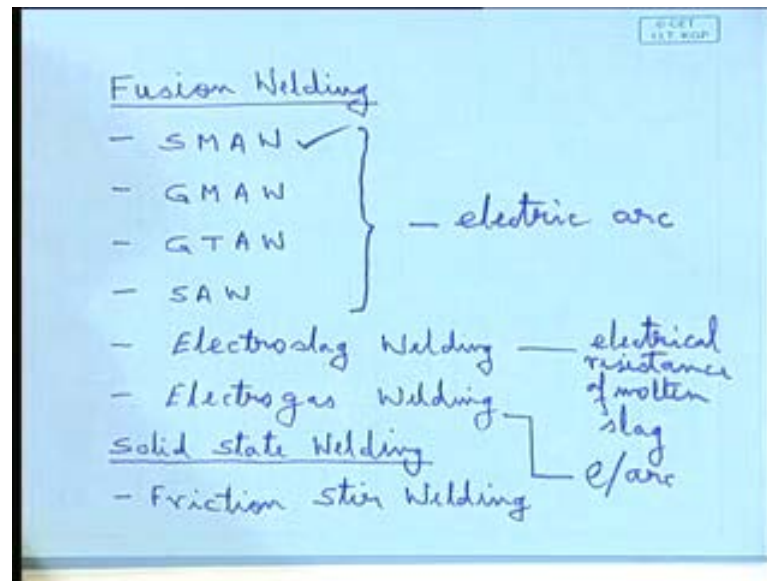 © CET
I.I.T. KGP
Fusion Welding
- SMAW ✓
- GMAW
- GTAW
- SAW
- electric arc
- Electroslag Welding - electrical resistance of molten slag
- Electrogas Welding - e/arc
Solid State Welding
- Friction Stir Welding